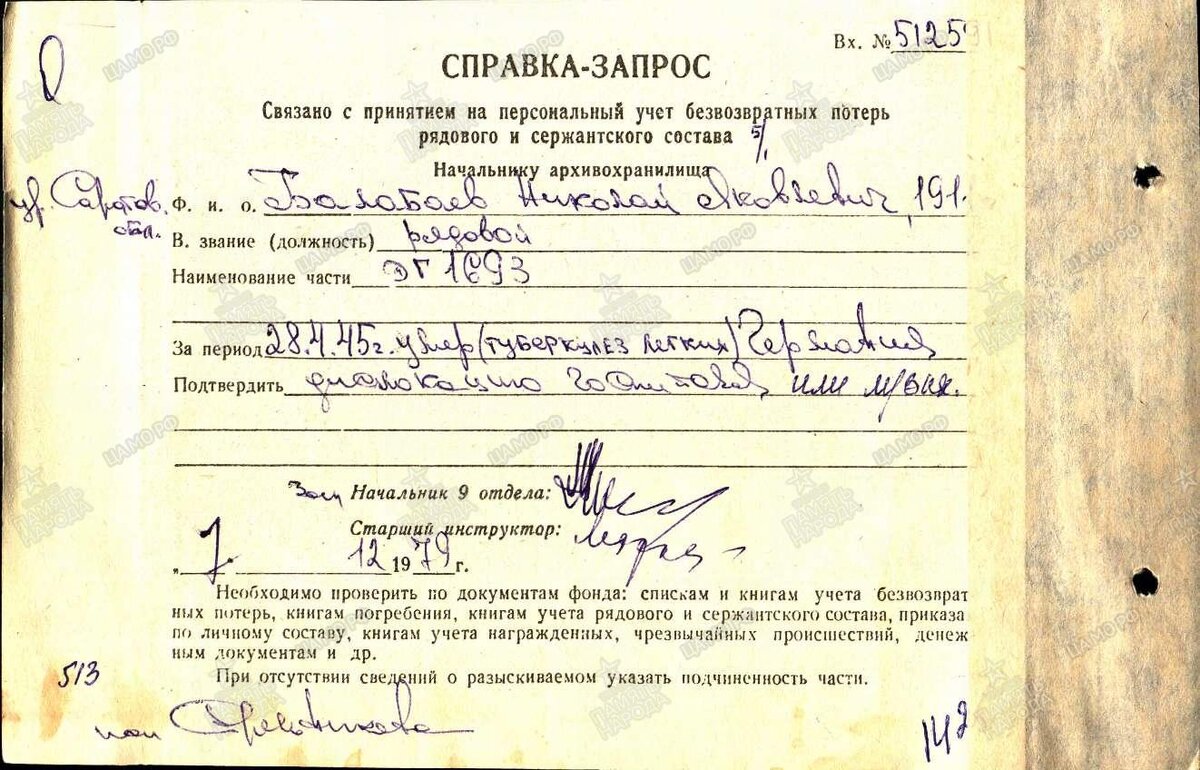 Вх. № 51259
СПРАВКА-ЗАПРОС
Связано с принятием на персональный учет безвозвратных потерь
рядового и сержантского состава 5/1
Начальнику архивохранилища
ур. Саратов. обл.
Ф. и о. Балабаев Николай Яковлевич, 191.
В. звание (должность) рядовой
Наименование части ЭГ 1693
За период 28.4.45г. умер (туберкулез легких) Германия
Подтвердить дислокацию госпиталя, или
Зам Начальник 9 отдела:
Старший инструктор:
„ 7. 12 1979 г.
Необходимо проверить по документам фонда: спискам и книгам учета безвозврат
ных потерь, книгам погребения, книгам учета рядового и сержантского состава, приказа
по личному составу, книгам учета награжденных, чрезвычайных происшествий, денеж
ным документам и др.
513
При отсутствии сведений о разыскиваемом указать подчиненность части.
142